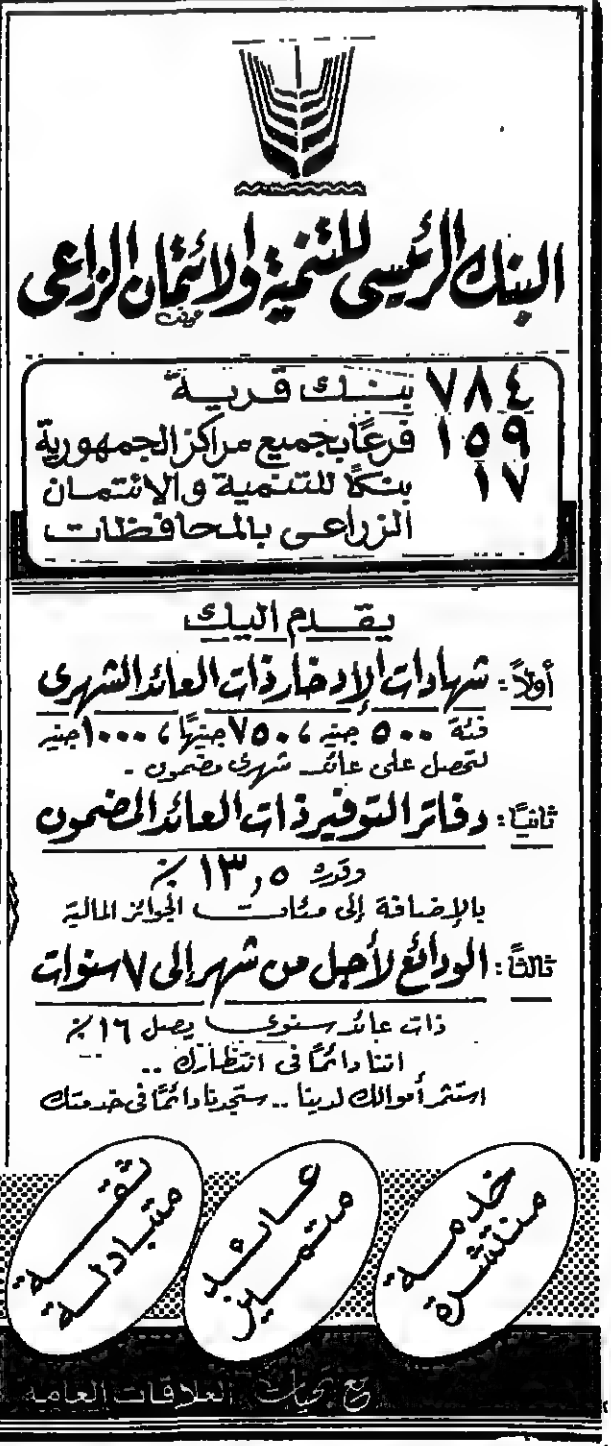 البنك الرئيسى للتنمية والائتمان الزراعى
٧٨٤ بنك قرية
١٥٩ فرعًا بجميع مراكز الجمهورية
١٧ بنكًا للتنمية والائتمان
الزراعى بالمحافظات
يقدم اليك
أولاً: شهادات الإدخار ذات العائد الشهرى
فئة ٥٠٠ جنيه، ٧٥٠ جنيهًا، ١٠٠٠ جنيه
لتحصل على عائد شهرى مضمون .
ثانيًا: دفاتر التوفير ذات العائد المضمون
وقدره ١٣,٥ ٪
بالإضافة إلى مئات الجوائز المالية
ثالثًا: الودائع لأجل من شهر إلى ٧ سنوات
ذات عائد سنوى يصل ١٦ ٪
اننا دائمًا فى انتظارك ..
استثمر أموالك لدينا .. ستجدنا دائمًا فى خدمتك
خدمة
منتشرة
عائد
متميز
ثقة
متبادلة
مع تحيات العلاقات العامه